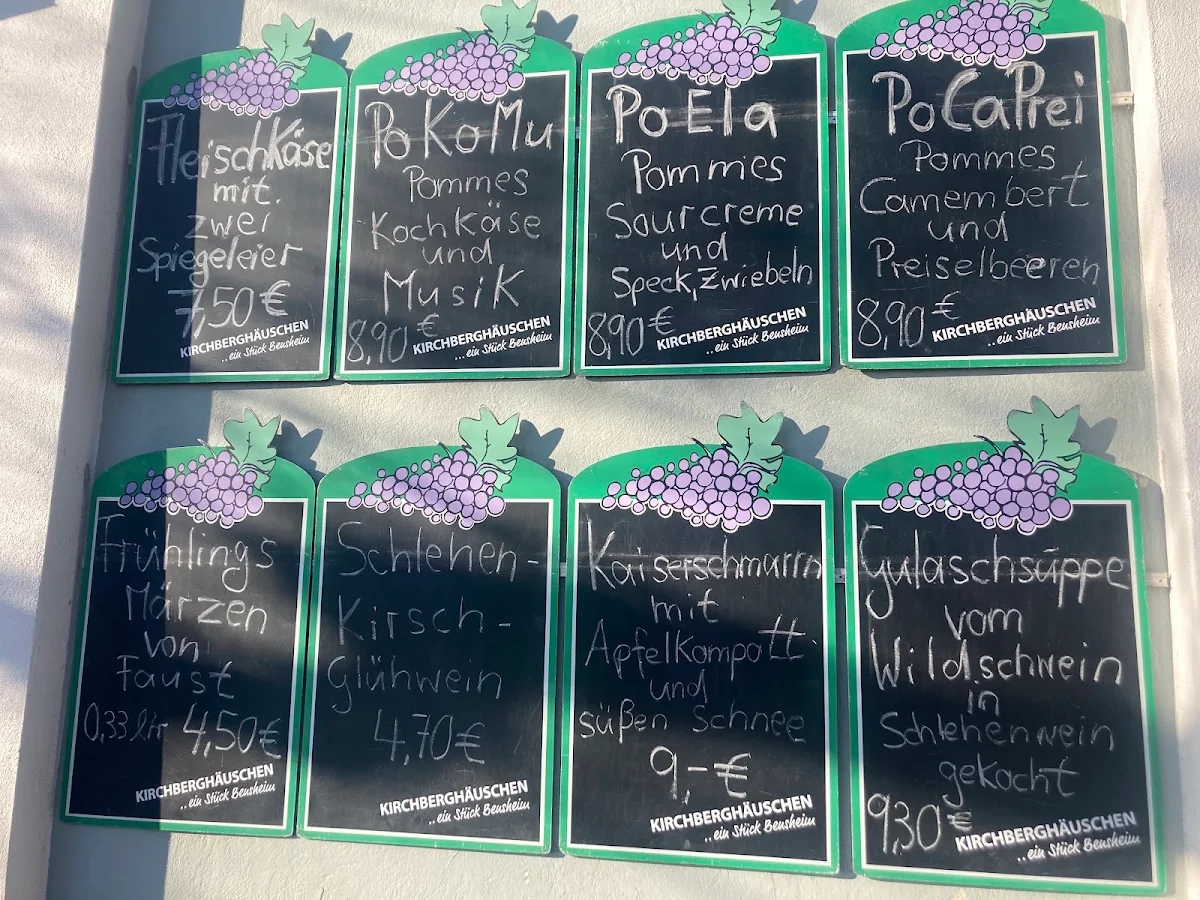 Fleischkäse
mit.
zwei
Spiegeleier
7,50 €
KIRCHBERGHÄUSCHEN
...ein Stück Bensheim
PoKoMu
Pommes
Kochkäse
und
Musik
8,90 €
KIRCHBERGHÄUSCHEN
...ein Stück Bensheim
Po Ela
Pommes
Sourcreme
und
Speck, Zwiebeln
8,90 €
KIRCHBERGHÄUSCHEN
...ein Stück Bensheim
PoCaPrei
Pommes
Camembert
und
Preiselbeeren
8,90 €
KIRCHBERGHÄUSCHEN
...ein Stück Bensheim
Frühlings
Märzen
von
Faust
0,33 ltr 4,50€
KIRCHBERGHÄUSCHEN
...ein Stück Bensheim
Schlehen-
Kirsch-
Glühwein
4,70€
KIRCHBERGHÄUSCHEN
...ein Stück Bensheim
Kaiserschmarrn
mit
Apfelkompott
und
süßen Schnee
9,-€
KIRCHBERGHÄUSCHEN
...ein Stück Bensheim
Gulaschsüppe
vom
Wildschwein
in
Schlehenwein
gekocht
9,30€
KIRCHBERGHÄUSCHEN
...ein Stück Bensheim